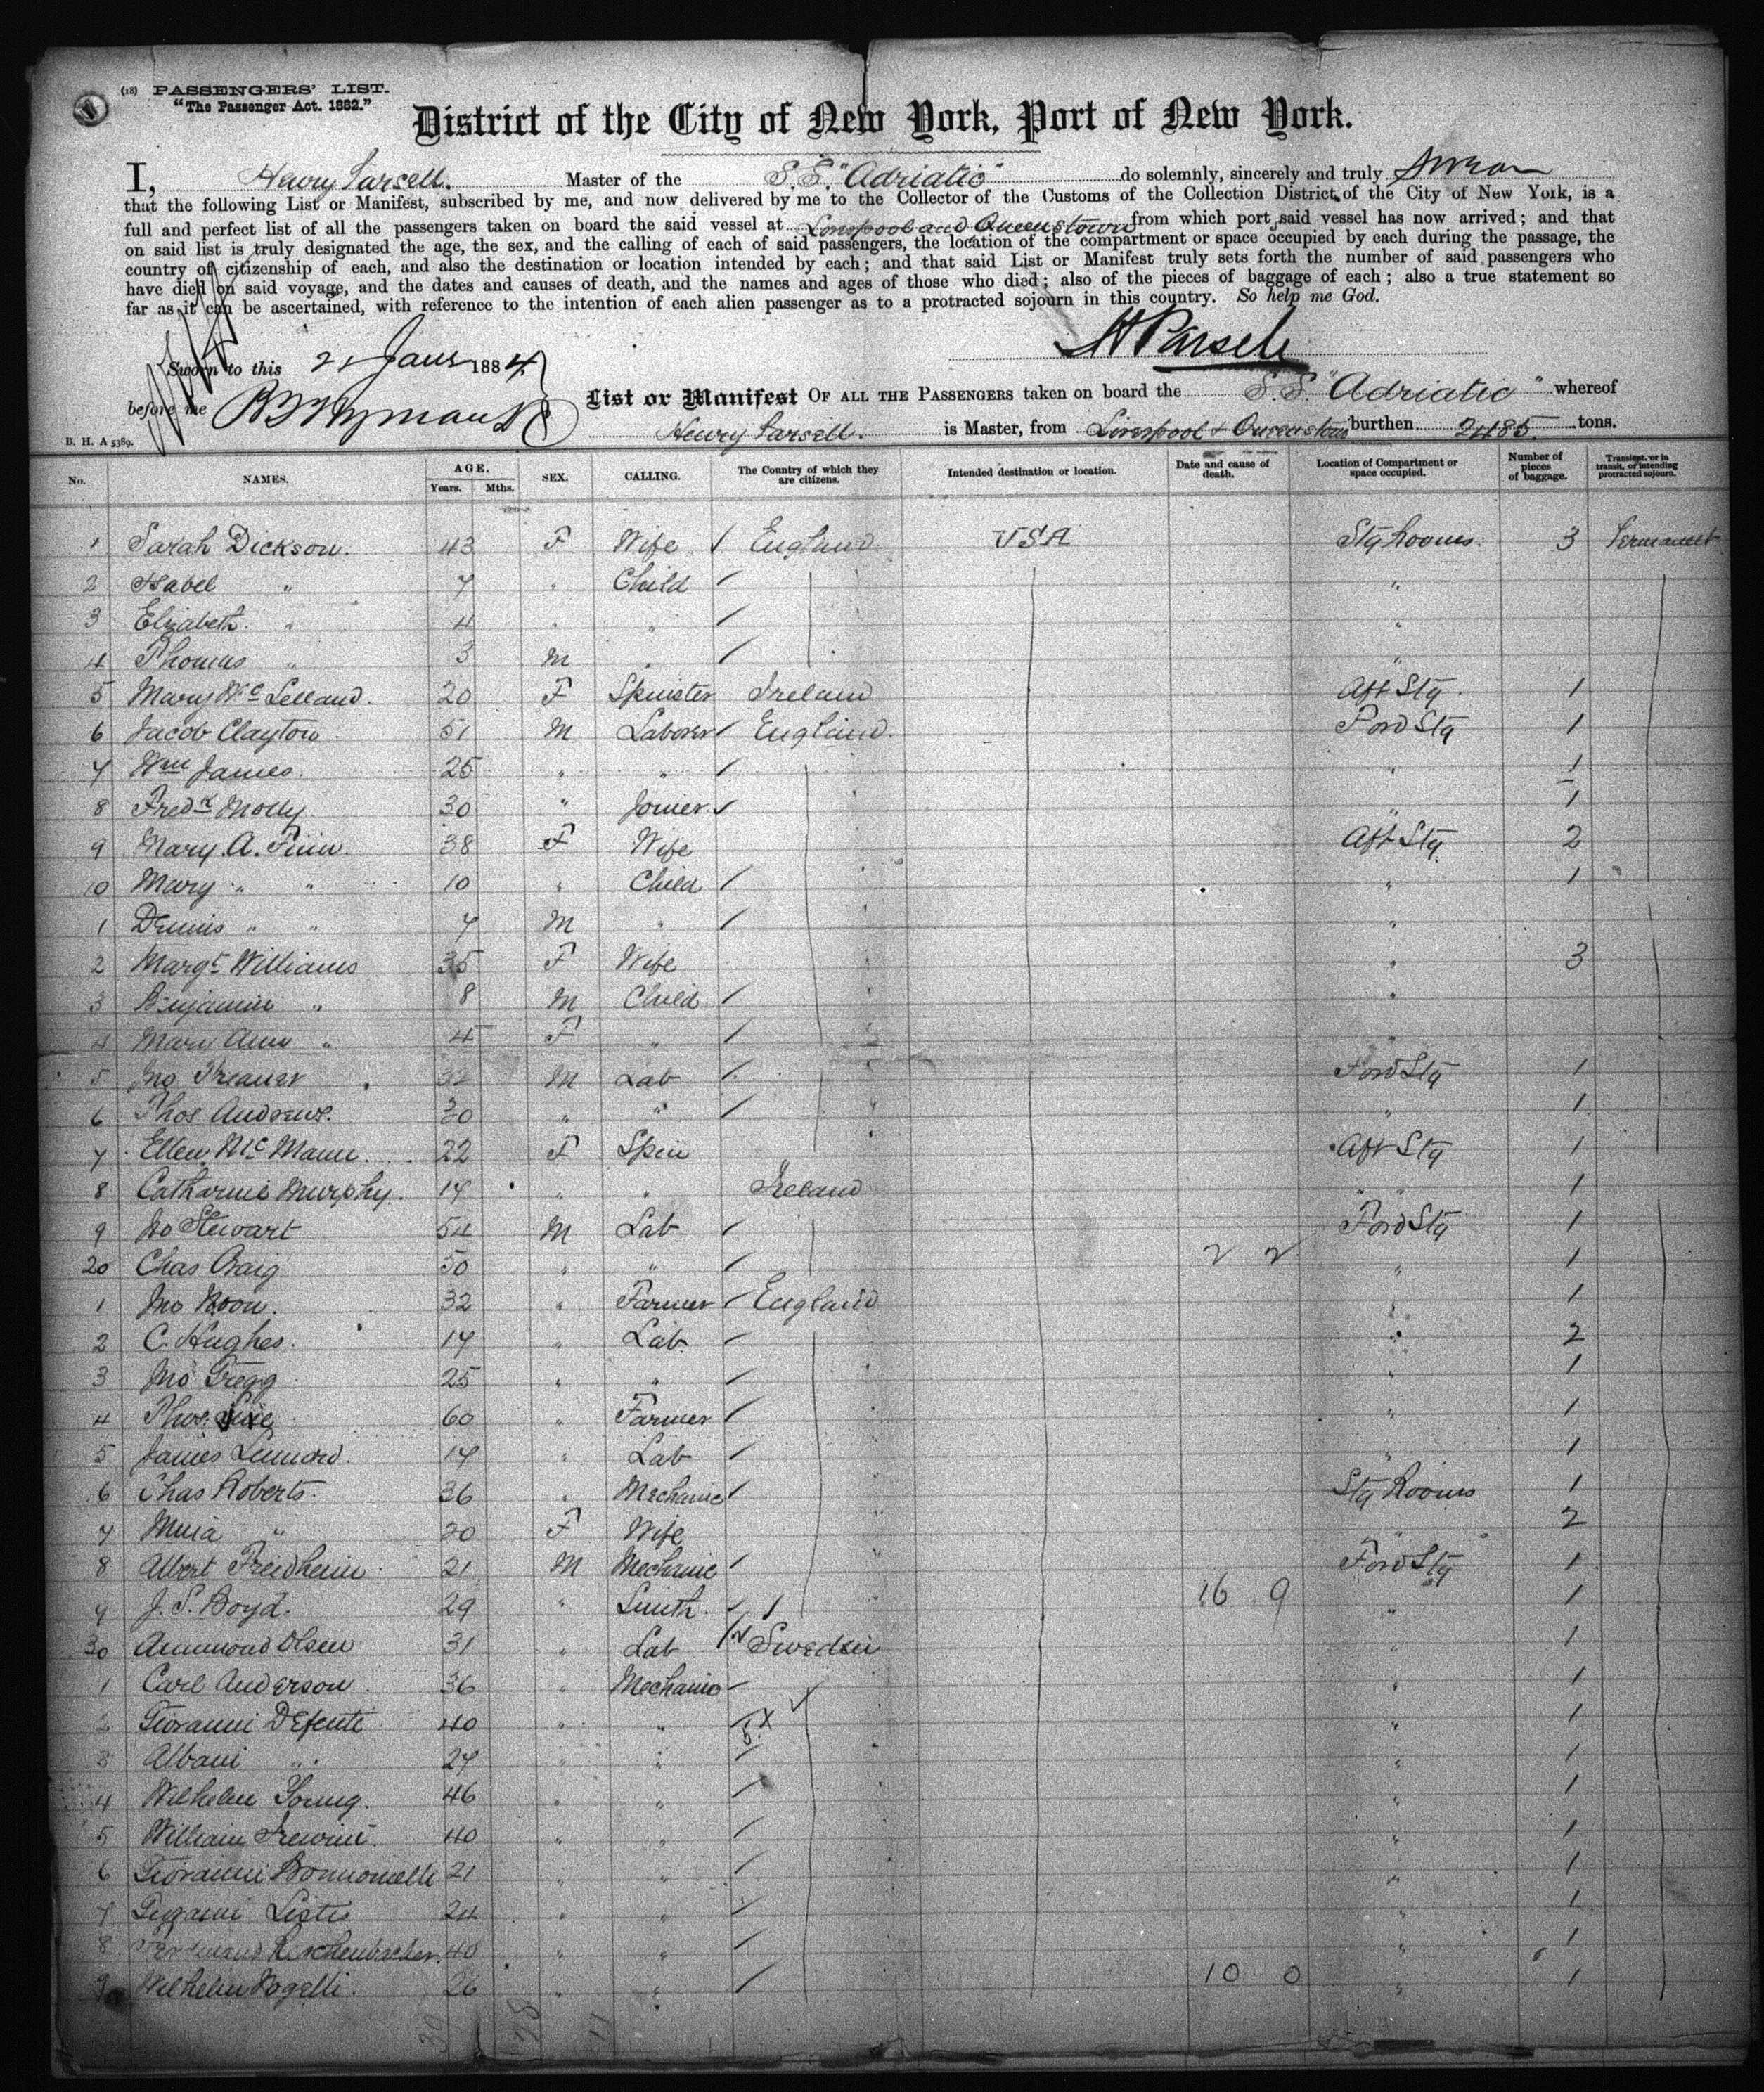 (18) PASSENGERS' LIST.
"The Passenger Act. 1882."
District of the City of New York, Port of New York.
I, Henry Parsell. Master of the S.S. "Adriatic" do solemnly, sincerely and truly swear
that the following List or Manifest, subscribed by me, and now delivered by me to the Collector of the Customs of the Collection District of the City of New York, is a
full and perfect list of all the passengers taken on board the said vessel at Liverpool and Queenstown from which port said vessel has now arrived; and that
on said list is truly designated the age, the sex, and the calling of each of said passengers, the location of the compartment or space occupied by each during the passage, the
country of citizenship of each, and also the destination or location intended by each; and that said List or Manifest truly sets forth the number of said passengers who
have died on said voyage, and the dates and causes of death, and the names and ages of those who died; also of the pieces of baggage of each; also a true statement so
far as it can be ascertained, with reference to the intention of each alien passenger as to a protracted sojourn in this country. So help me God.
H Parsell
Sworn to this 21 Jany 1884
before me
List or Manifest OF ALL THE PASSENGERS taken on board the S.S. "Adriatic" whereof
Henry Parsell. is Master, from Liverpool & Queenstown burthen 2485 tons.
B. H. A 5389.
No. NAMES. AGE. Years. Mths. SEX. CALLING. The Country of which they are citizens. Intended destination or location. Date and cause of death. Location of Compartment or space occupied. Number of pieces of baggage. Transient, or in transit, or intending protracted sojourn.
1 Sarah Dickson. 43 F Wife England USA Stg Rooms. 3 Permanent
2 Isabel " 7 " Child "
3 Elizabeth. " 4 " " "
4 Thomas " 3 M " "
5 Mary McLelland. 20 F Spinster Ireland Aft Stg. 1
6 Jacob Clayton. 51 M Laborer England. Ford Stg 1
7 Wm James. 25 " " " 1
8 Fredk Molly. 30 " Joiner " 1
9 Mary A. Finn. 38 F Wife Aft Stg. 2
10 Mary " " 10 " Child " 1
1 Dennis " " 7 M " "
2 Margt Williams 35 F Wife " 3
3 Benjamin " 8 M Child "
4 Mary Ann " 4 F "
5 Jno 32 M Lab Ford Stg 1
6 Thos Andrews. 30 " " " 1
7 Ellen McMann. 22 F Spin " Aft Stg 1
8 Catharine Murphy. 17 " " Ireland " " 1
9 Jno Stewart 54 M Lab Ford Stg 1
2 2
20 Chas Craig 50 " " " 1
1 Jno Noon. 32 " Farmer England " 1
2 C. Hughes. 17 " Lab. " 2
3 Jno Gregg 25 " " " 1
4 Thos. 60 " Farmer " 1
5 James 17 " Lab " 1
6 Chas Roberts. 36 " Mechanic Stg Rooms 1
7 " 20 F Wife " " 2
8 Albert Friedheim 21 M Mechanic Ford Stg 1
9 J. S. Boyd. 29 " Smith. 16 9 " 1
30 Olsen 31 " Lab Sweden " 1
1 Carl Anderson. 36 " Mechanic " 1
2 Giovanni Defenti 40 " " " 1
3 Albani " 27 " " " 1
4 Wilhelm Young. 46 " " " 1
5 William 40 " " " 1
6 Giovanni Bonnomelli 21 " " " 1
7 24 " " " 1
8 Ferdinand 40 " " " 1
9 Wilhelm Vogelli. 26 " " 10 0 " 1